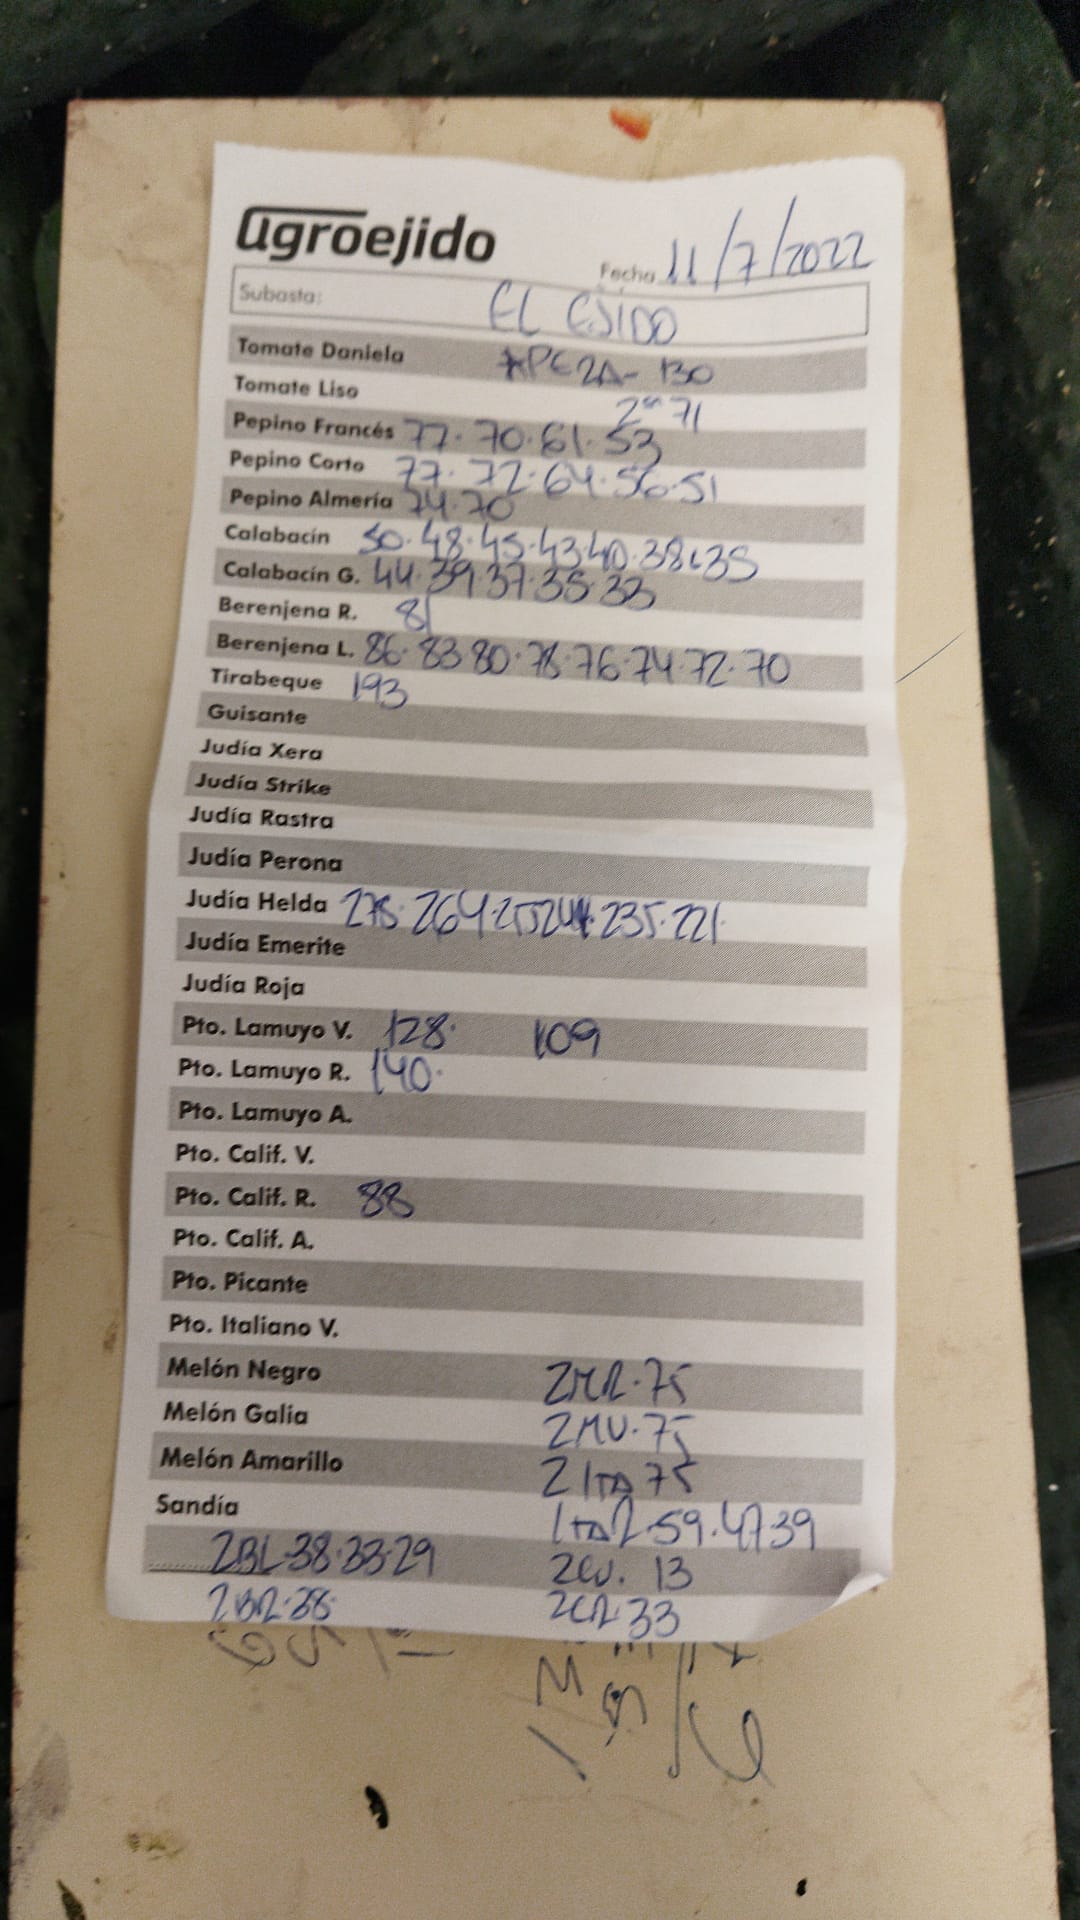 agroejido
Fecha 11/7/2022
Subasta: EL EJIDO
Tomate Daniela *PEZA- 130
Tomate Liso 2ª 71
Pepino Francés 77. 70. 61. 53
Pepino Corto 77. 72. 64. 56. 51
Pepino Almería 74. 70
Calabacín 50. 48. 45. 43. 40. 38. 35
Calabacín G. 44. 39. 37. 35. 33
Berenjena R. 81
Berenjena L. 86. 83 80. 78. 76. 74. 72. 70
Tirabeque 193
Guisante
Judía Xera
Judía Strike
Judía Rastra
Judía Perona
Judía Helda 278. 264. 255 244. 235. 221.
Judía Emerite
Judía Roja
Pto. Lamuyo V. 128. 109
Pto. Lamuyo R. 140.
Pto. Lamuyo A.
Pto. Calif. V.
Pto. Calif. R. 88
Pto. Calif. A.
Pto. Picante
Pto. Italiano V.
Melón Negro 2MR. 75
Melón Galia 2MV. 75
Melón Amarillo 2 ITA 75
Sandía ITAR. 59. 47. 39
2BL. 38. 33. 29 2CV. 13
2BR. 38. 2CR. 33